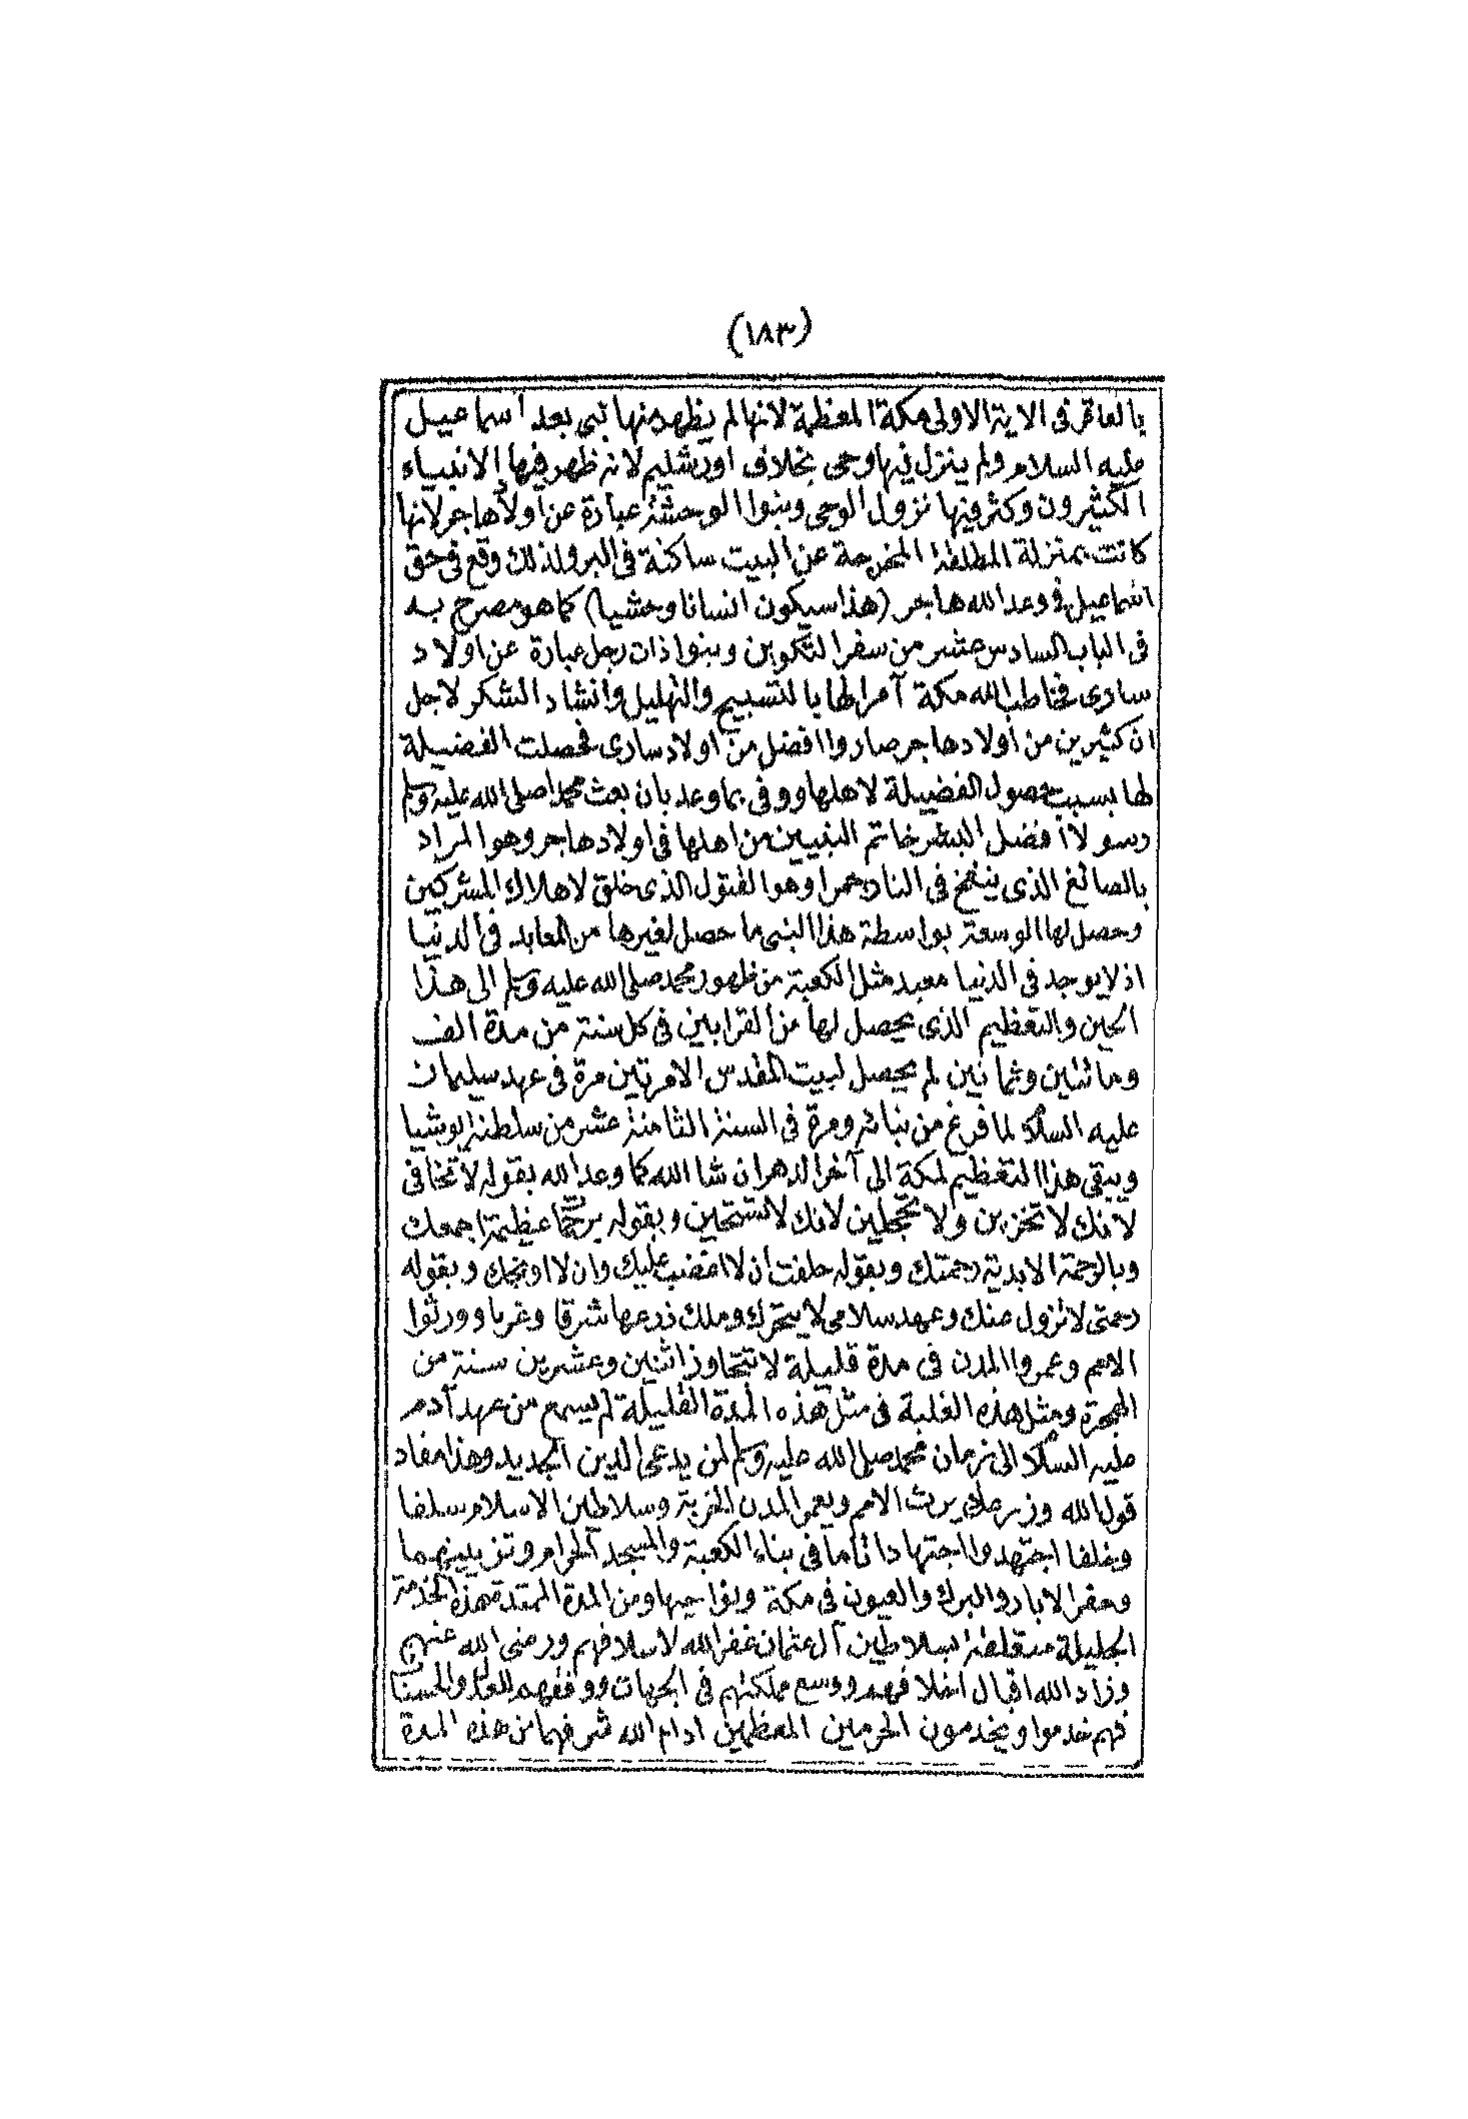 (١٨٣)
بالعاقر فى الاية الاولى مكة المعظمة لانها لم يظهر منها نبى بعد اسماعيل
عليه السلام ولم ينزل فيها وحى بخلاف اورشليم لانه ظهر فيها الانبياء
الكثيرون وكثر فيها نزول الوحى وبنوا الوحشة عبارة عن اولاد هاجر لانها
كانت بمنزلة المطلقة المخرجة عن البيت ساكنة فى البر ولذلك وقع فى حق
اسماعيل فى وعد الله هاجر (هذا سيكون انسانا وحشيا) كما هو مصرح به
فى الباب السادس عشر من سفر التكوين وبنوا ذات رجل عبارة عن اولاد
سارى فخاطب الله مكة آمرا لها بالتسبيح والتهليل وانشاد الشكر لاجل
ان كثيرين من اولاد هاجر صاروا افضل من اولاد سارى فحصلت الفضيلة
لها بسبب حصول الفضيلة لاهلها ووفى بما وعد بان بعث محمدا صلى الله عليه وسلم
رسولا افضل البشر خاتم النبيين من اهلها فى اولاد هاجر وهو المراد
بالصائغ الذى ينفخ فى النار جمرا وهو القتول الذى خلق لاهلاك المشركين
وحصل لها الوسعة بواسطة هذا النبى ما حصل لغيرها من المعابد فى الدنيا
اذ لا يوجد فى الدنيا معبد مثل الكعبة من ظهور محمد صلى الله عليه وسلم الى هذا
الحين والتعظيم الذى يحصل لها من القرابين فى كل سنة من مدة الف
ومائتين وثمانين لم يحصل لبيت المقدس الا مرتين مرة فى عهد سليمان
عليه السلام لما فرغ من بنائه ومرة فى السنة الثامنة عشر من سلطنة يوشيا
ويبقى هذا التعظيم لمكة الى آخر الدهر ان شا الله كما وعد الله بقوله لا تخافى
لانك لا تخزين ولا تخجلين لانك لا تستحين وبقوله برحمة عظيمة اجمعك
وبالرحمة الابدية رحمتك وبقوله حلفت ان لا اغضب عليك وان لا اوبخك وبقوله
رحمتى لا تزول عنك وعهد سلامى لا يتحرك وملك زرعها شرقا وغربا وورثوا
الامم وعمروا المدن فى مدة قليلة لا تتجاوز اثنين وعشرين سنة من
الهجرة ومثل هذه الغلبة فى مثل هذه المدة القليلة لم يسمع من عهد آدم
عليه السلام الى زمان محمد صلى الله عليه وسلم لمن يدعى الدين الجديد وهذا مفاد
قول الله وزرعك يرث الامم ويعمر المدن الخربة وسلاطين الاسلام سلفا
وخلفا اجتهدوا اجتهادا تاما فى بناء الكعبة والمسجد الحرام وتزيينهما
وحفر الابار والبرك والعيون فى مكة ونواحيها ومن المدة الممتدة هذه الخدمة
الجليلة متعلقة بسلاطين آل عثمان غفر الله لاسلافهم ورضى الله عنهم
وزاد الله اقبال اخلافهم ووسع مملكتهم فى الجهات ووفقهم للعدل والحسنات
فهم خدموا ويخدمون الحرمين المعظمين ادام الله شرفهما من هذه المدة